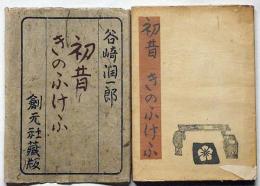 谷崎潤一郎
初昔
きのふけふ
創元社蔵版
初昔 きのふけふ